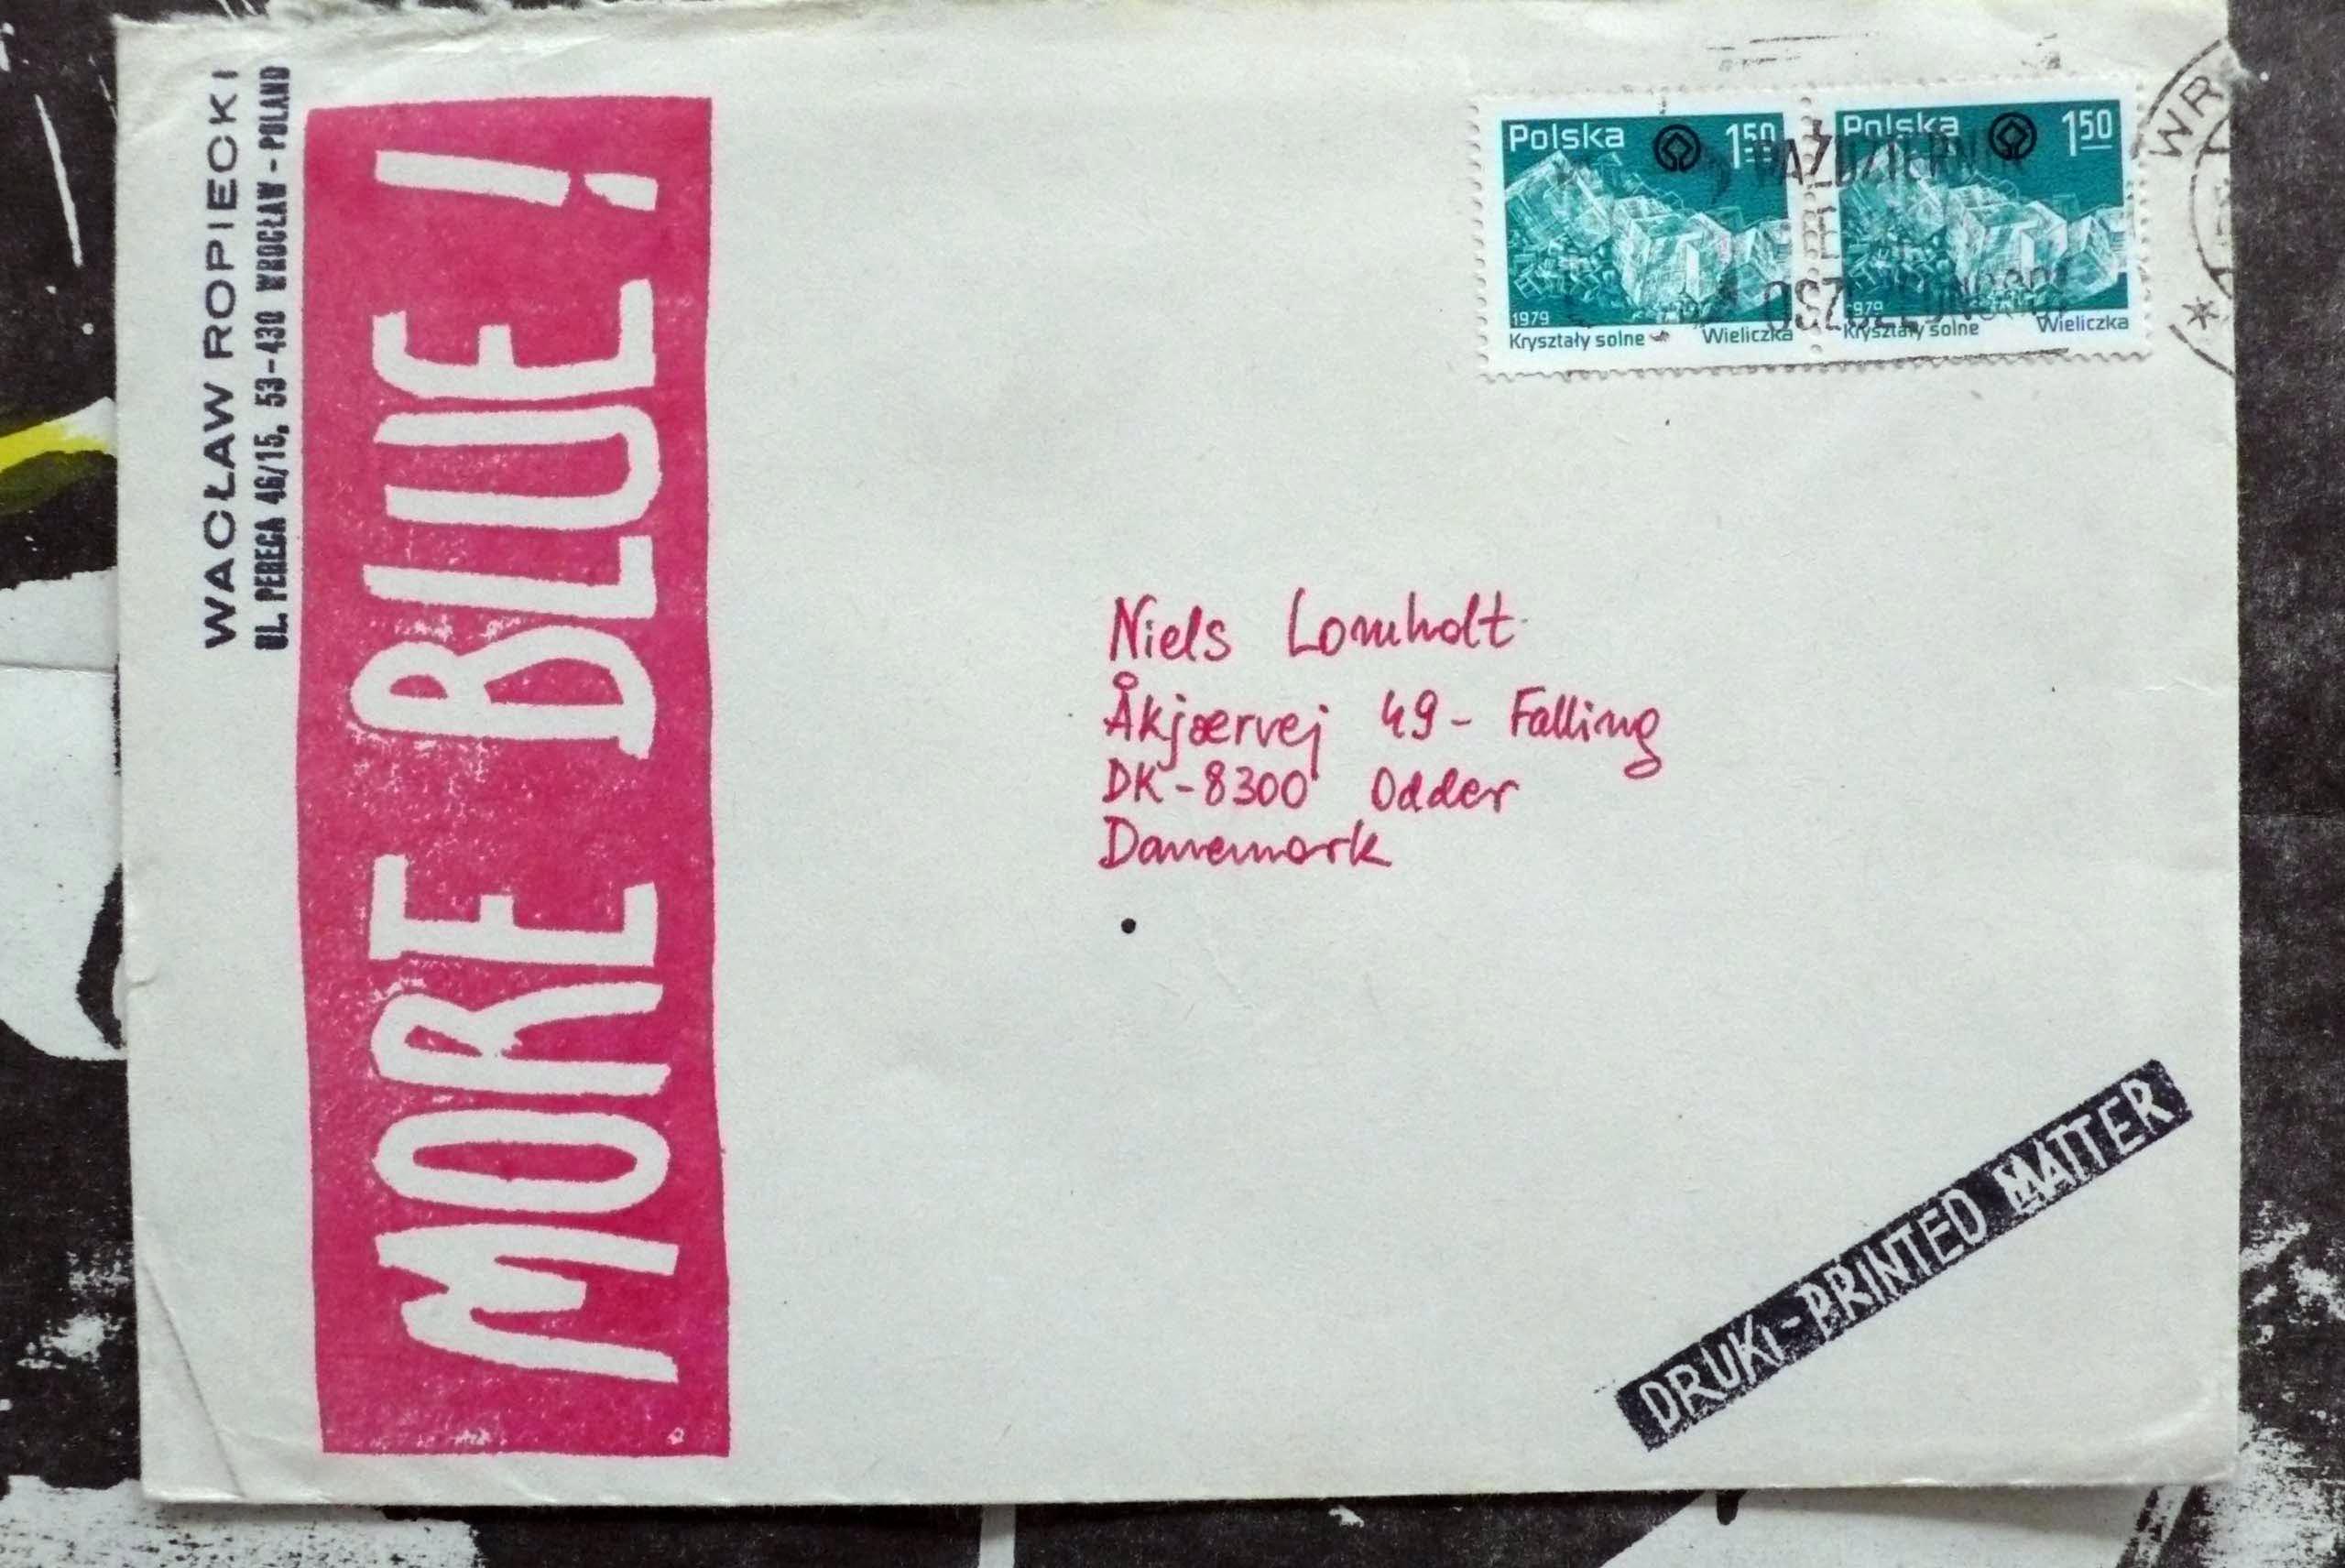 WACŁAW ROPIECKI
UL. PERECA 46/15, 53-430 WROCŁAW - POLAND
MORE BLUE!
Polska 150
1979
Kryształy solne Wieliczka
Polska 150
1979
Kryształy solne Wieliczka
PAŹDZIERNIK
WR
Niels Lomholt
Åkjærvej 49 - Falling
DK-8300 Odder
Danemark
DRUKI-PRINTED MATTER